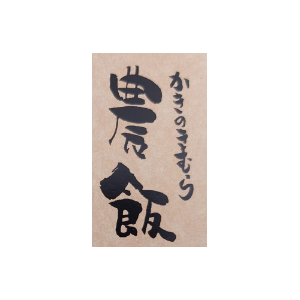 かきのきむら
農飯